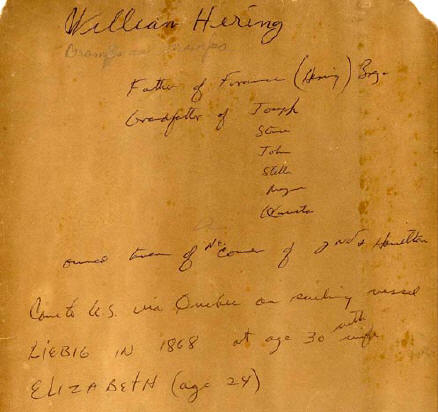 Willian Hering
Father of Florence (Hering)
Grandfather of Joseph
Steve
John
Stella
owned tavern at NE Corner of 2nd & Hamilton
Came to U.S. via Quebec on sailing vessel
LIEBIG IN 1868 at age 30 with wife
ELIZABETH (age 24)